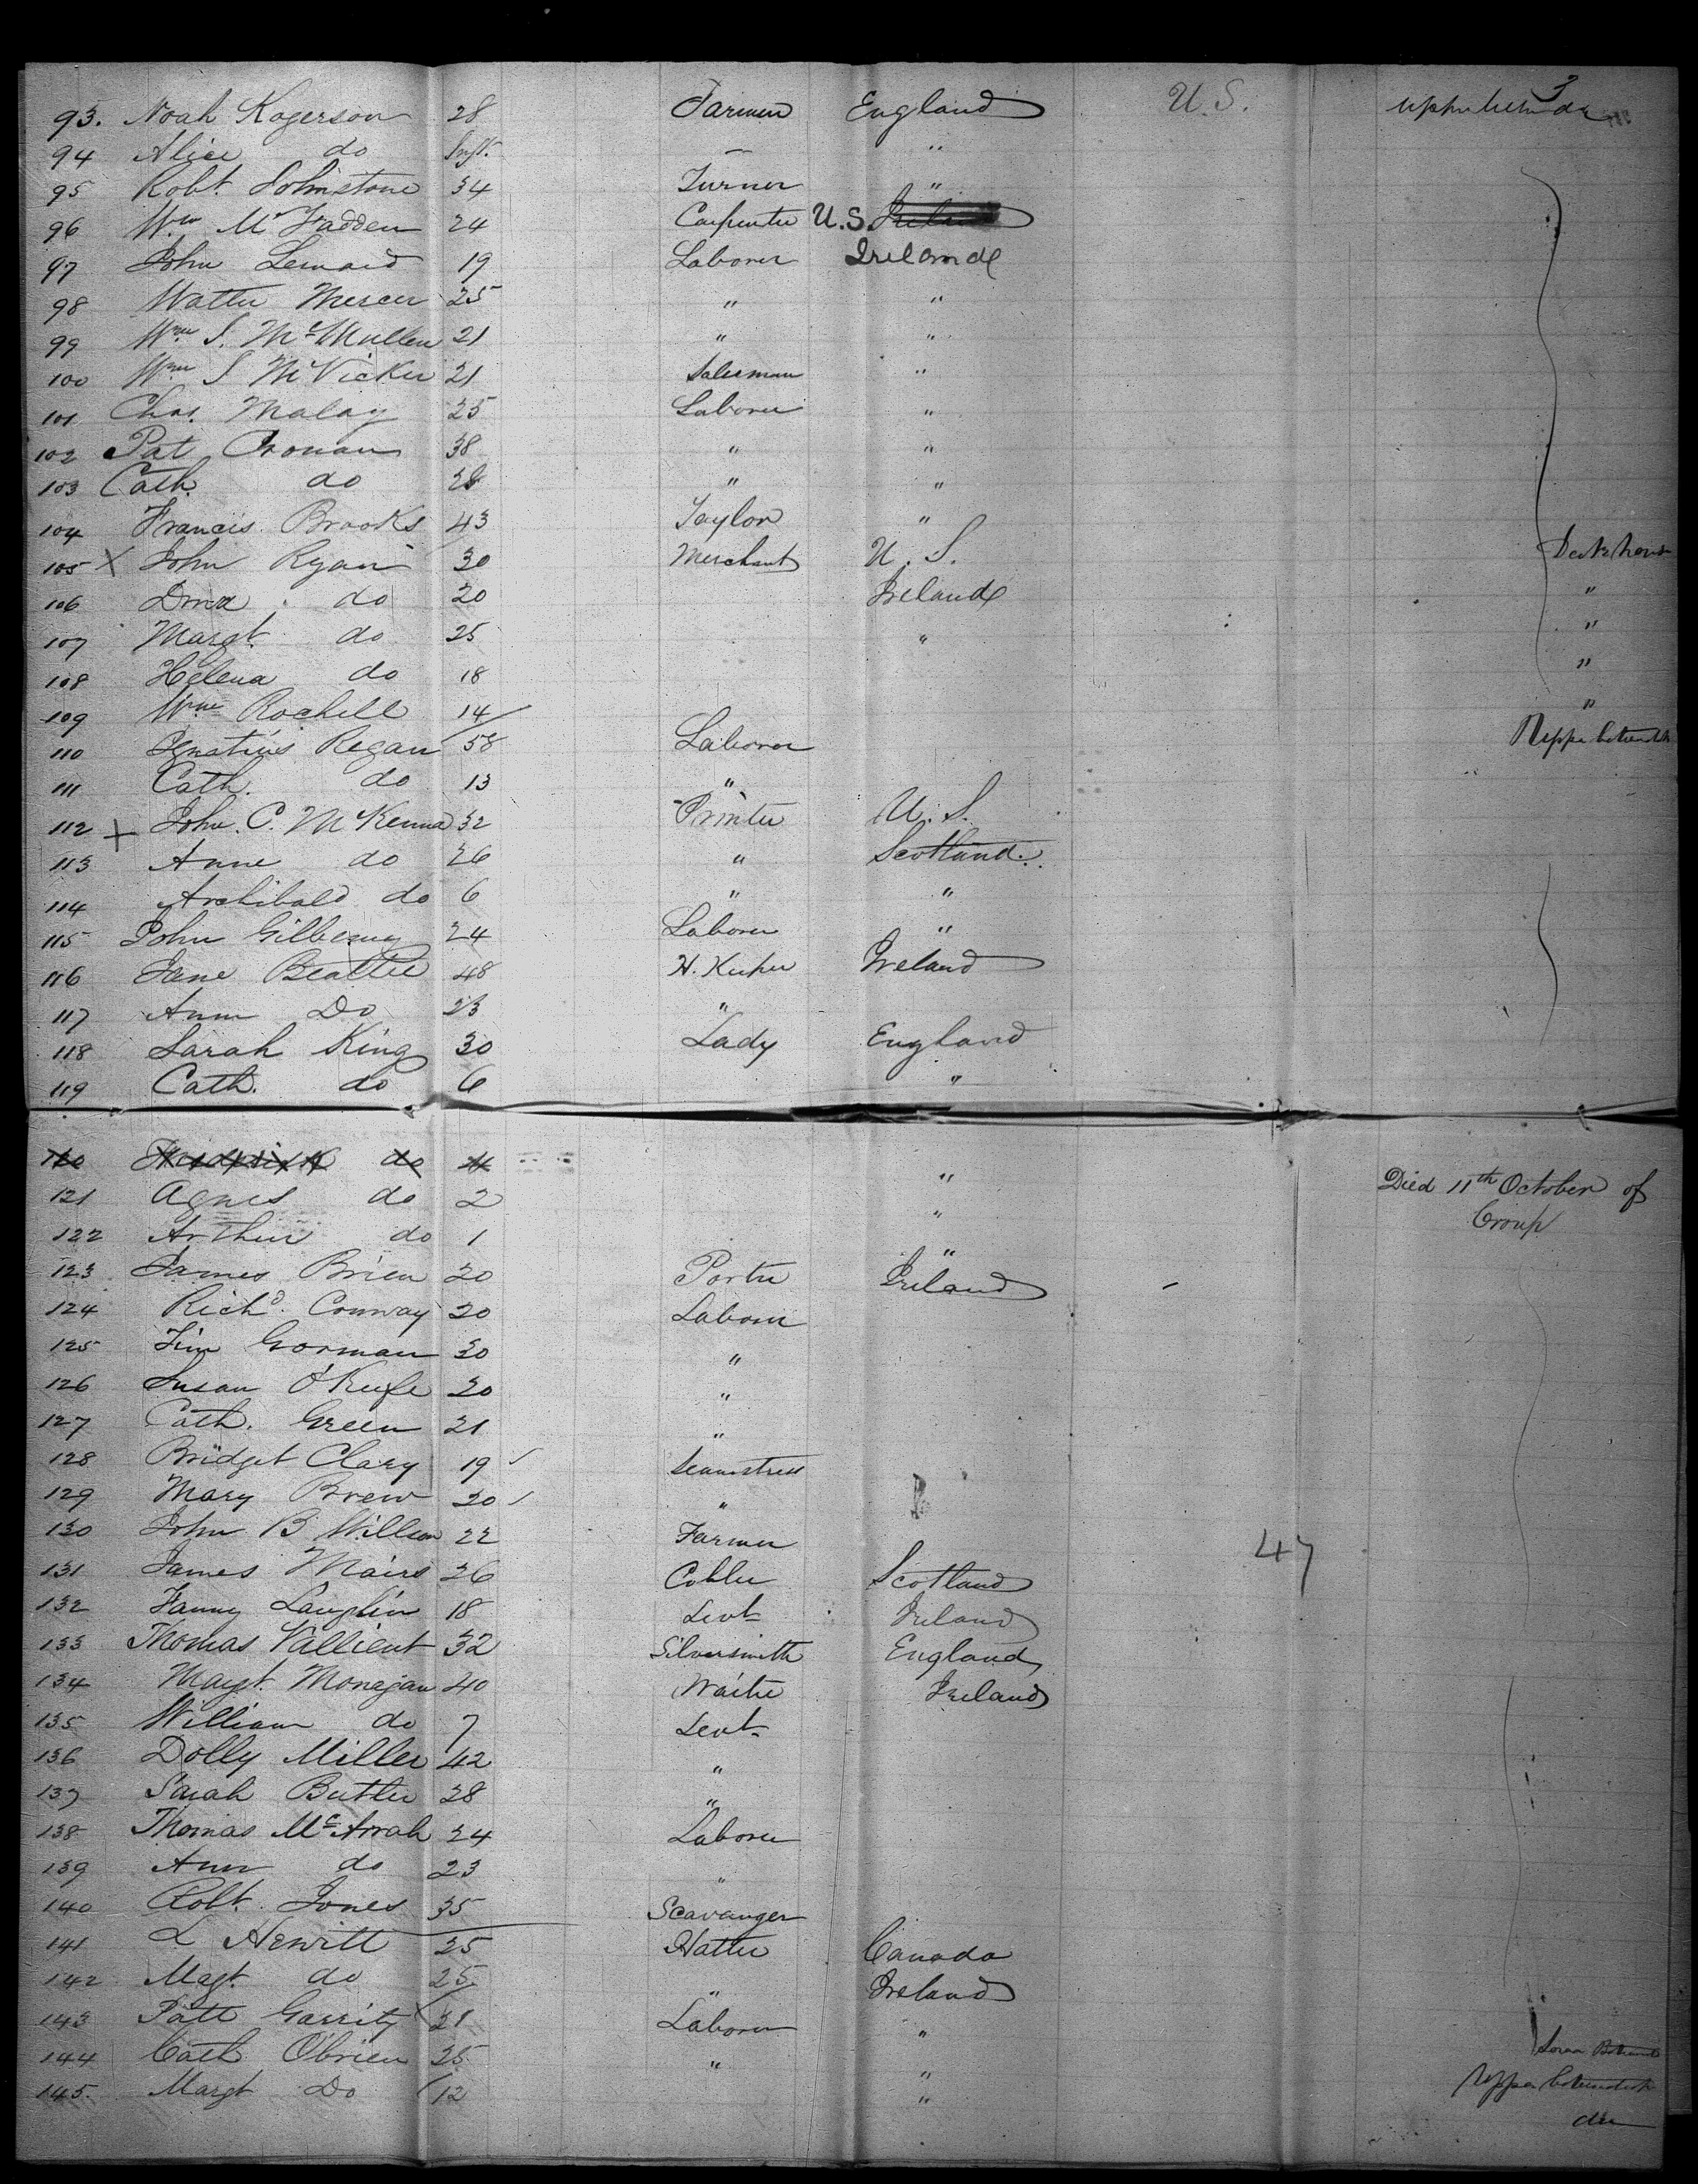 3
93. Noah Rogerson 28 Farmer England U.S. Upper between de
94 Alice do Inft. — "
95 Robt. Johnstone 34 Turner "
96 Wm McFadden 24 Carpenter U.S. Ireland
97 John Lenard 19 Laborer Ireland
98 Walter Mercer 25 " "
99 Wm S. McMullen 21 " "
100 Wm S McVicker 21 Salesman "
101 Chas. Malay 25 Laborer "
102 Pat Cronan 38 " "
103 Cath. do 28 " "
104 Francis Brooks 43 Taylor "
105 X John Ryan 30 Merchant U.S. Deck house
106 do 20 Ireland "
107 Margt. do 25 " "
108 Helena do 18 "
109 Wm Rochell 14 "
110 Ignatius Regan 58 Laborer Upper between de
111 Cath. do 13 "
112 + John. C. McKenna 32 Printer U.S.
113 Anne do 26 " Scotland
114 Archibald do 6 " "
115 John 24 Laborer "
116 Jane Beattie 48 H. Keeper Ireland
117 Ann Do 23 "
118 Sarah King 30 Lady England
119 Cath. do 6 "
120 Frederick do 4 " Died 11th October of
121 Agnes do 2 " Croup
122 Arthur do 1 "
123 James Brien 20 Porter Ireland -
124 Richd. Conway 20 Laborer
125 Jim Gorman 30 "
126 Susan O'Keefe 20 "
127 Cath. Green 21 "
128 Bridget Clary 19 Seamstress
129 Mary Brew 20 "
130 John B Willson 22 Farmer 47
131 James Mairs 26 Cobler Scotland
132 Fanny Lauglin 18 Sevt Ireland
133 Thomas Vallient 32 Silversmith England
134 Margt. Monagan 40 Waiter Ireland
135 William do 7 Sevt
136 Dolly Miller 42 "
137 Sarah Butler 28 "
138 Thomas McArrah 24 Laborer
139 Ann do 23 "
140 Robt. Jones 35 Scavanger
141 L Hewitt 25 Hatter Canada
142 Magt. do 25 " Ireland
143 Patt Garrity 21 Laborer "
144 Cath O'brien 25 " "
145. Margt Do 12 " Upper between de
do